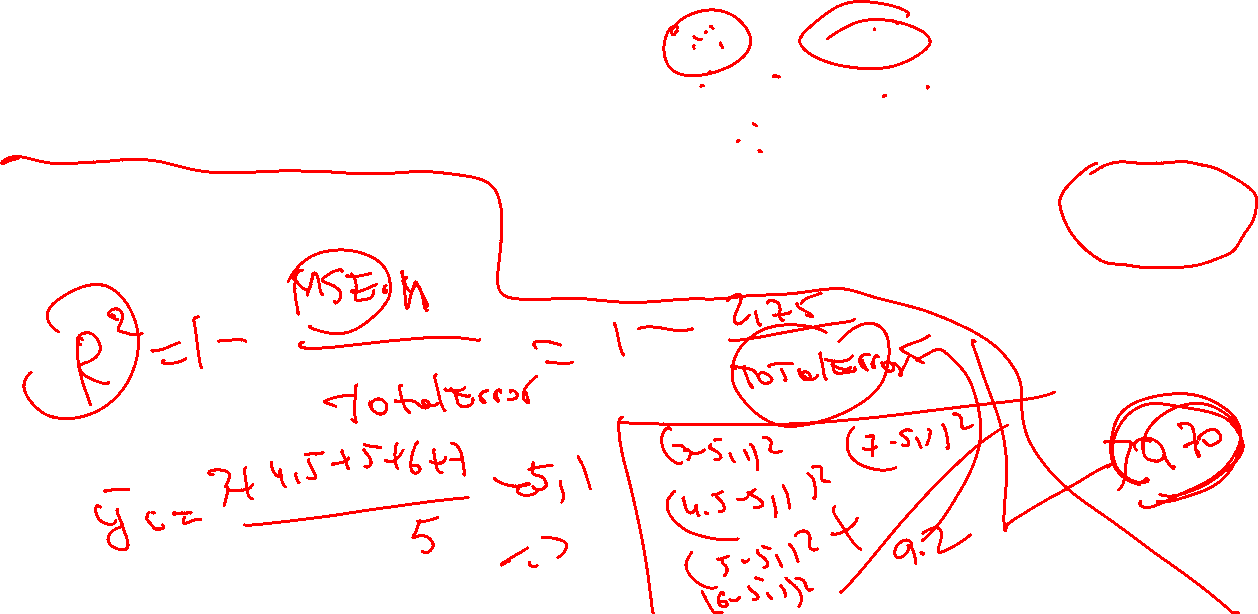 R² = 1 - MSE·n / Total Error = 1 - 2,75 / Total Error
ȳ = 3+4,5+5+6+7 / 5 = 5,1
(3-5,1)² (7-5,1)²
(4.5-5,1)²
(5-5,1)² +
(6-5,1)²
9.2
0,70